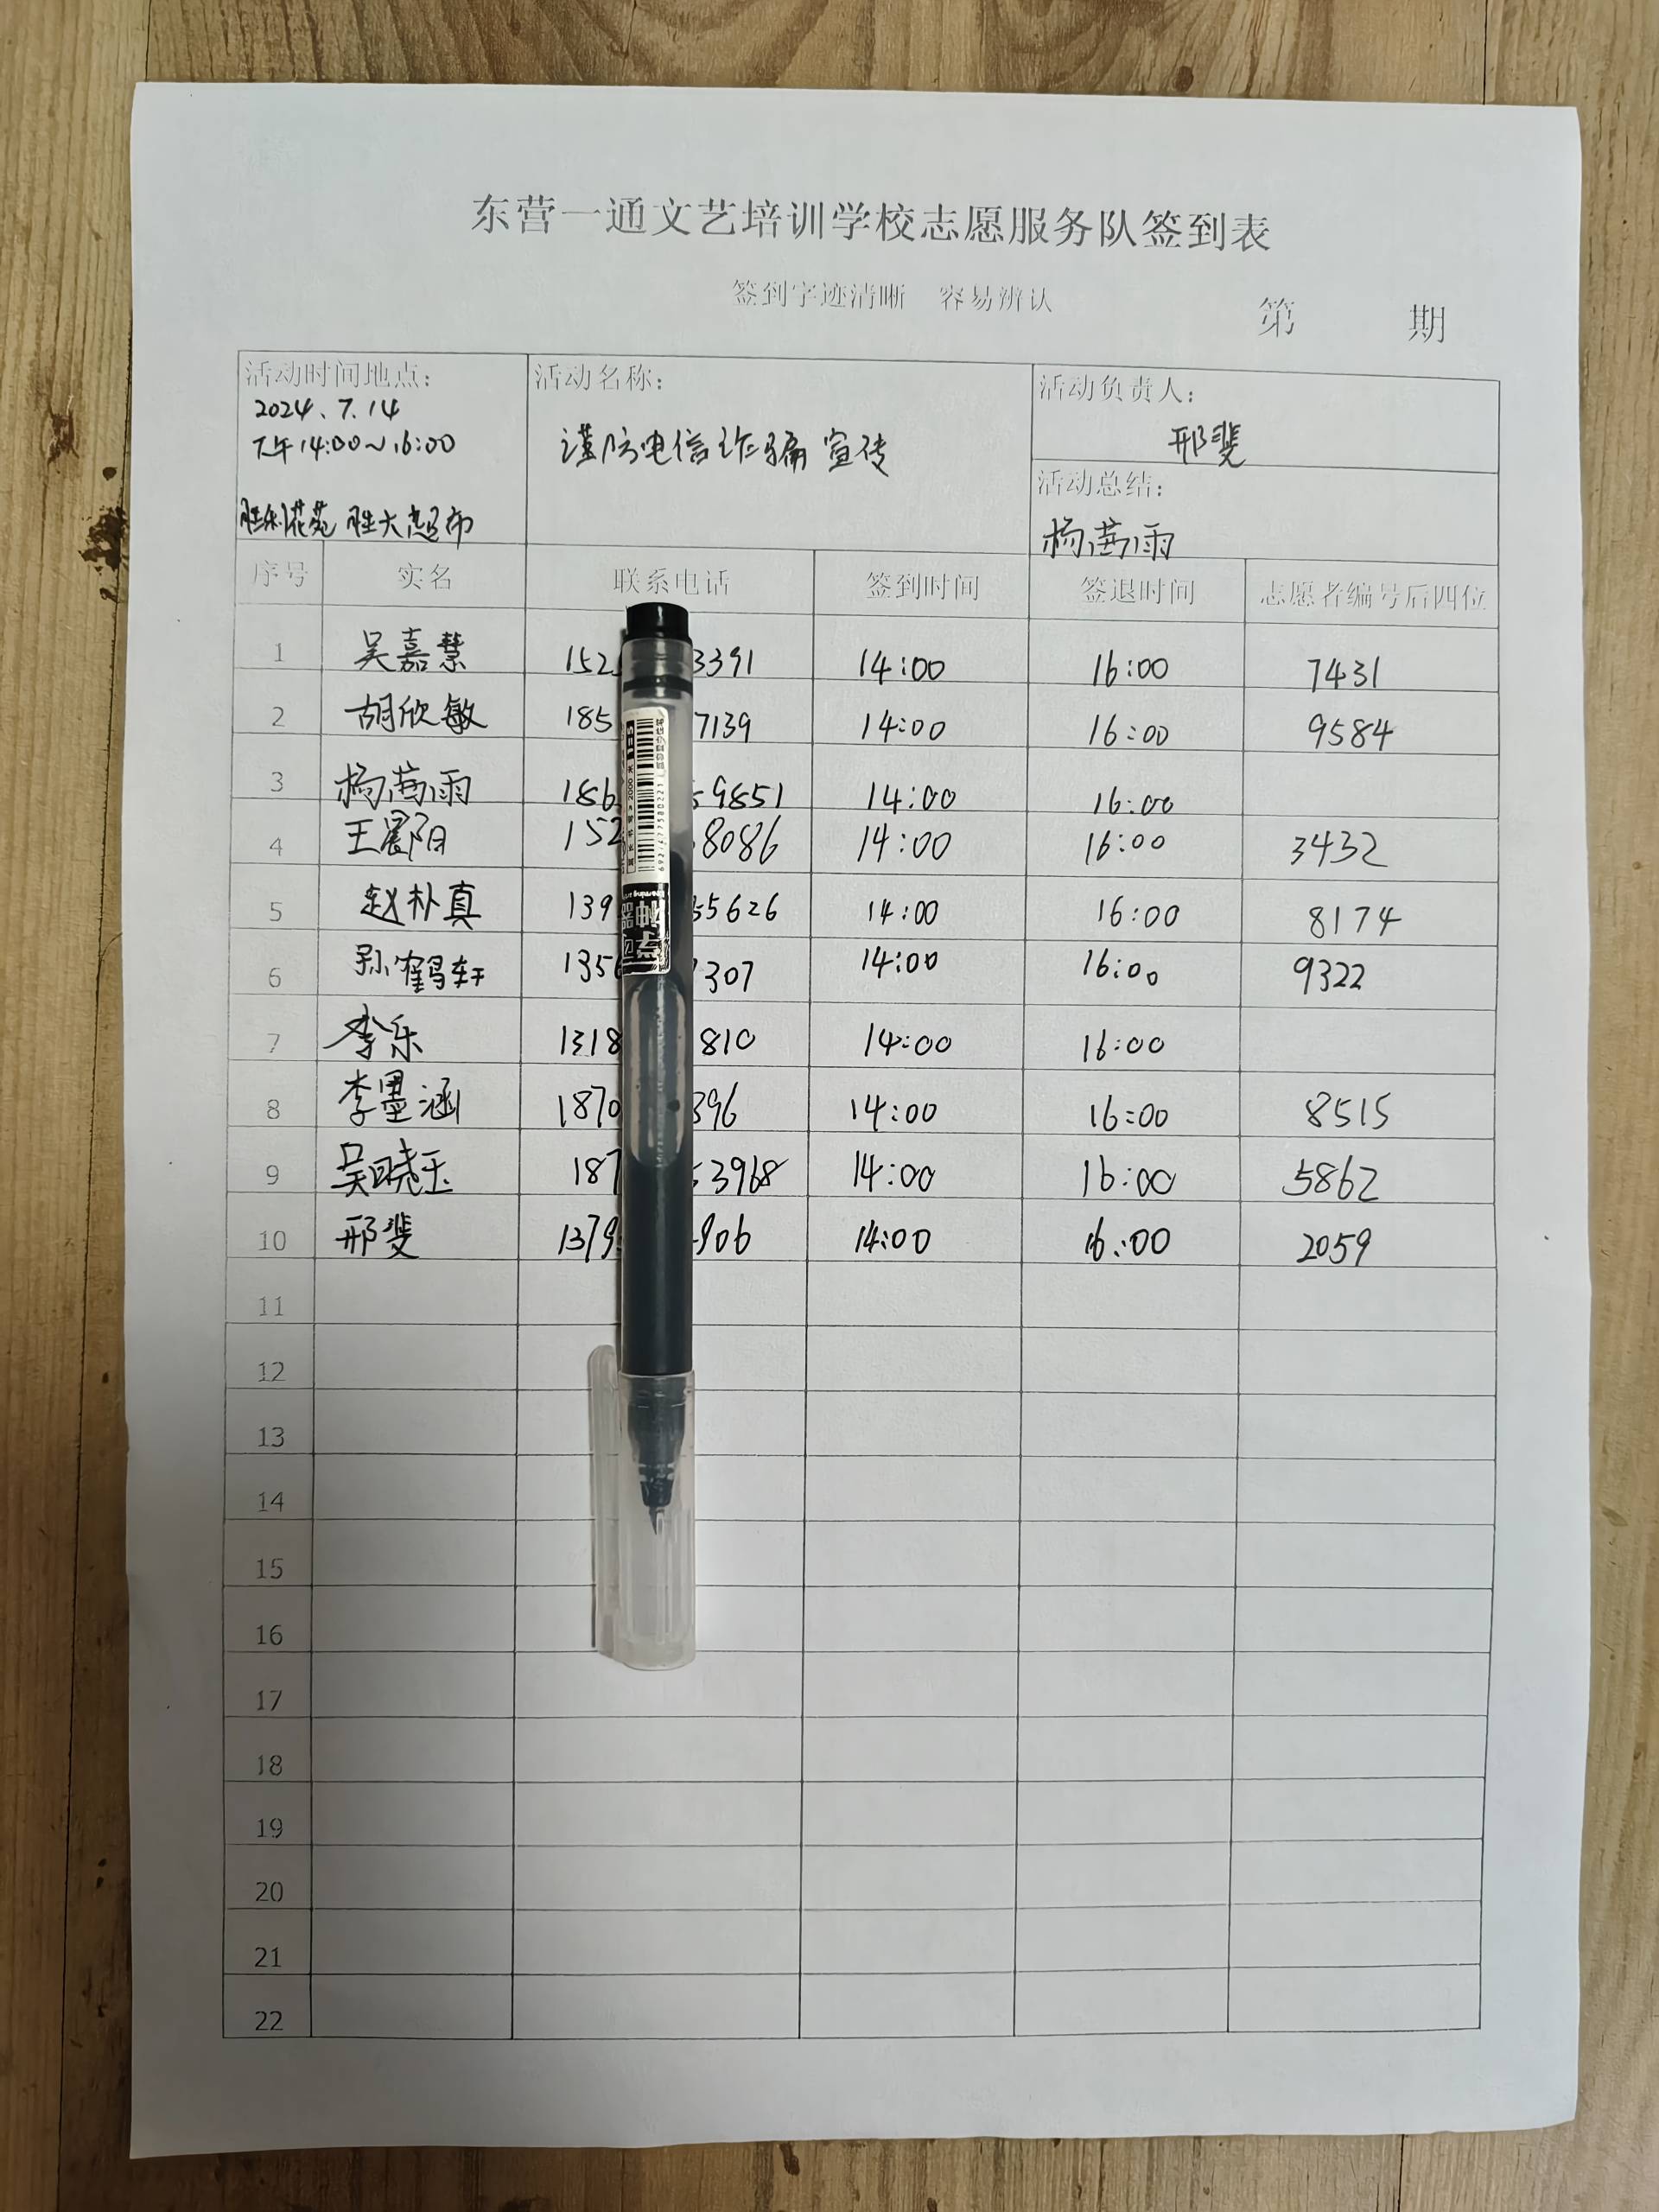 东营一通文艺培训学校志愿服务队签到表
签到字迹清晰 容易辨认
第 期
活动时间地点：
2024、7.14
下午14:00～16:00
胜利花苑 胜大超市
活动名称：
谨防电信诈骗宣传
活动负责人：
邢斐
活动总结：
杨茜雨
序号 实名 联系电话 签到时间 签退时间 志愿者编号后四位
1 吴嘉慧 152 3391 14:00 16:00 7431
2 胡欣敏 185 7139 14:00 16:00 9584
3 杨茜雨 186 9851 14:00 16:00
4 王晨阳 152 8086 14:00 16:00 3432
5 赵朴真 139 55626 14:00 16:00 8174
6 孙鹤轩 1356 307 14:00 16:00 9322
7 李乐 1318 810 14:00 16:00
8 李墨涵 1870 396 14:00 16:00 8515
9 吴晓玉 187 3968 14:00 16:00 5862
10 邢斐 1379 906 14:00 16:00 2059
11
12
13
14
15
16
17
18
19
20
21
22